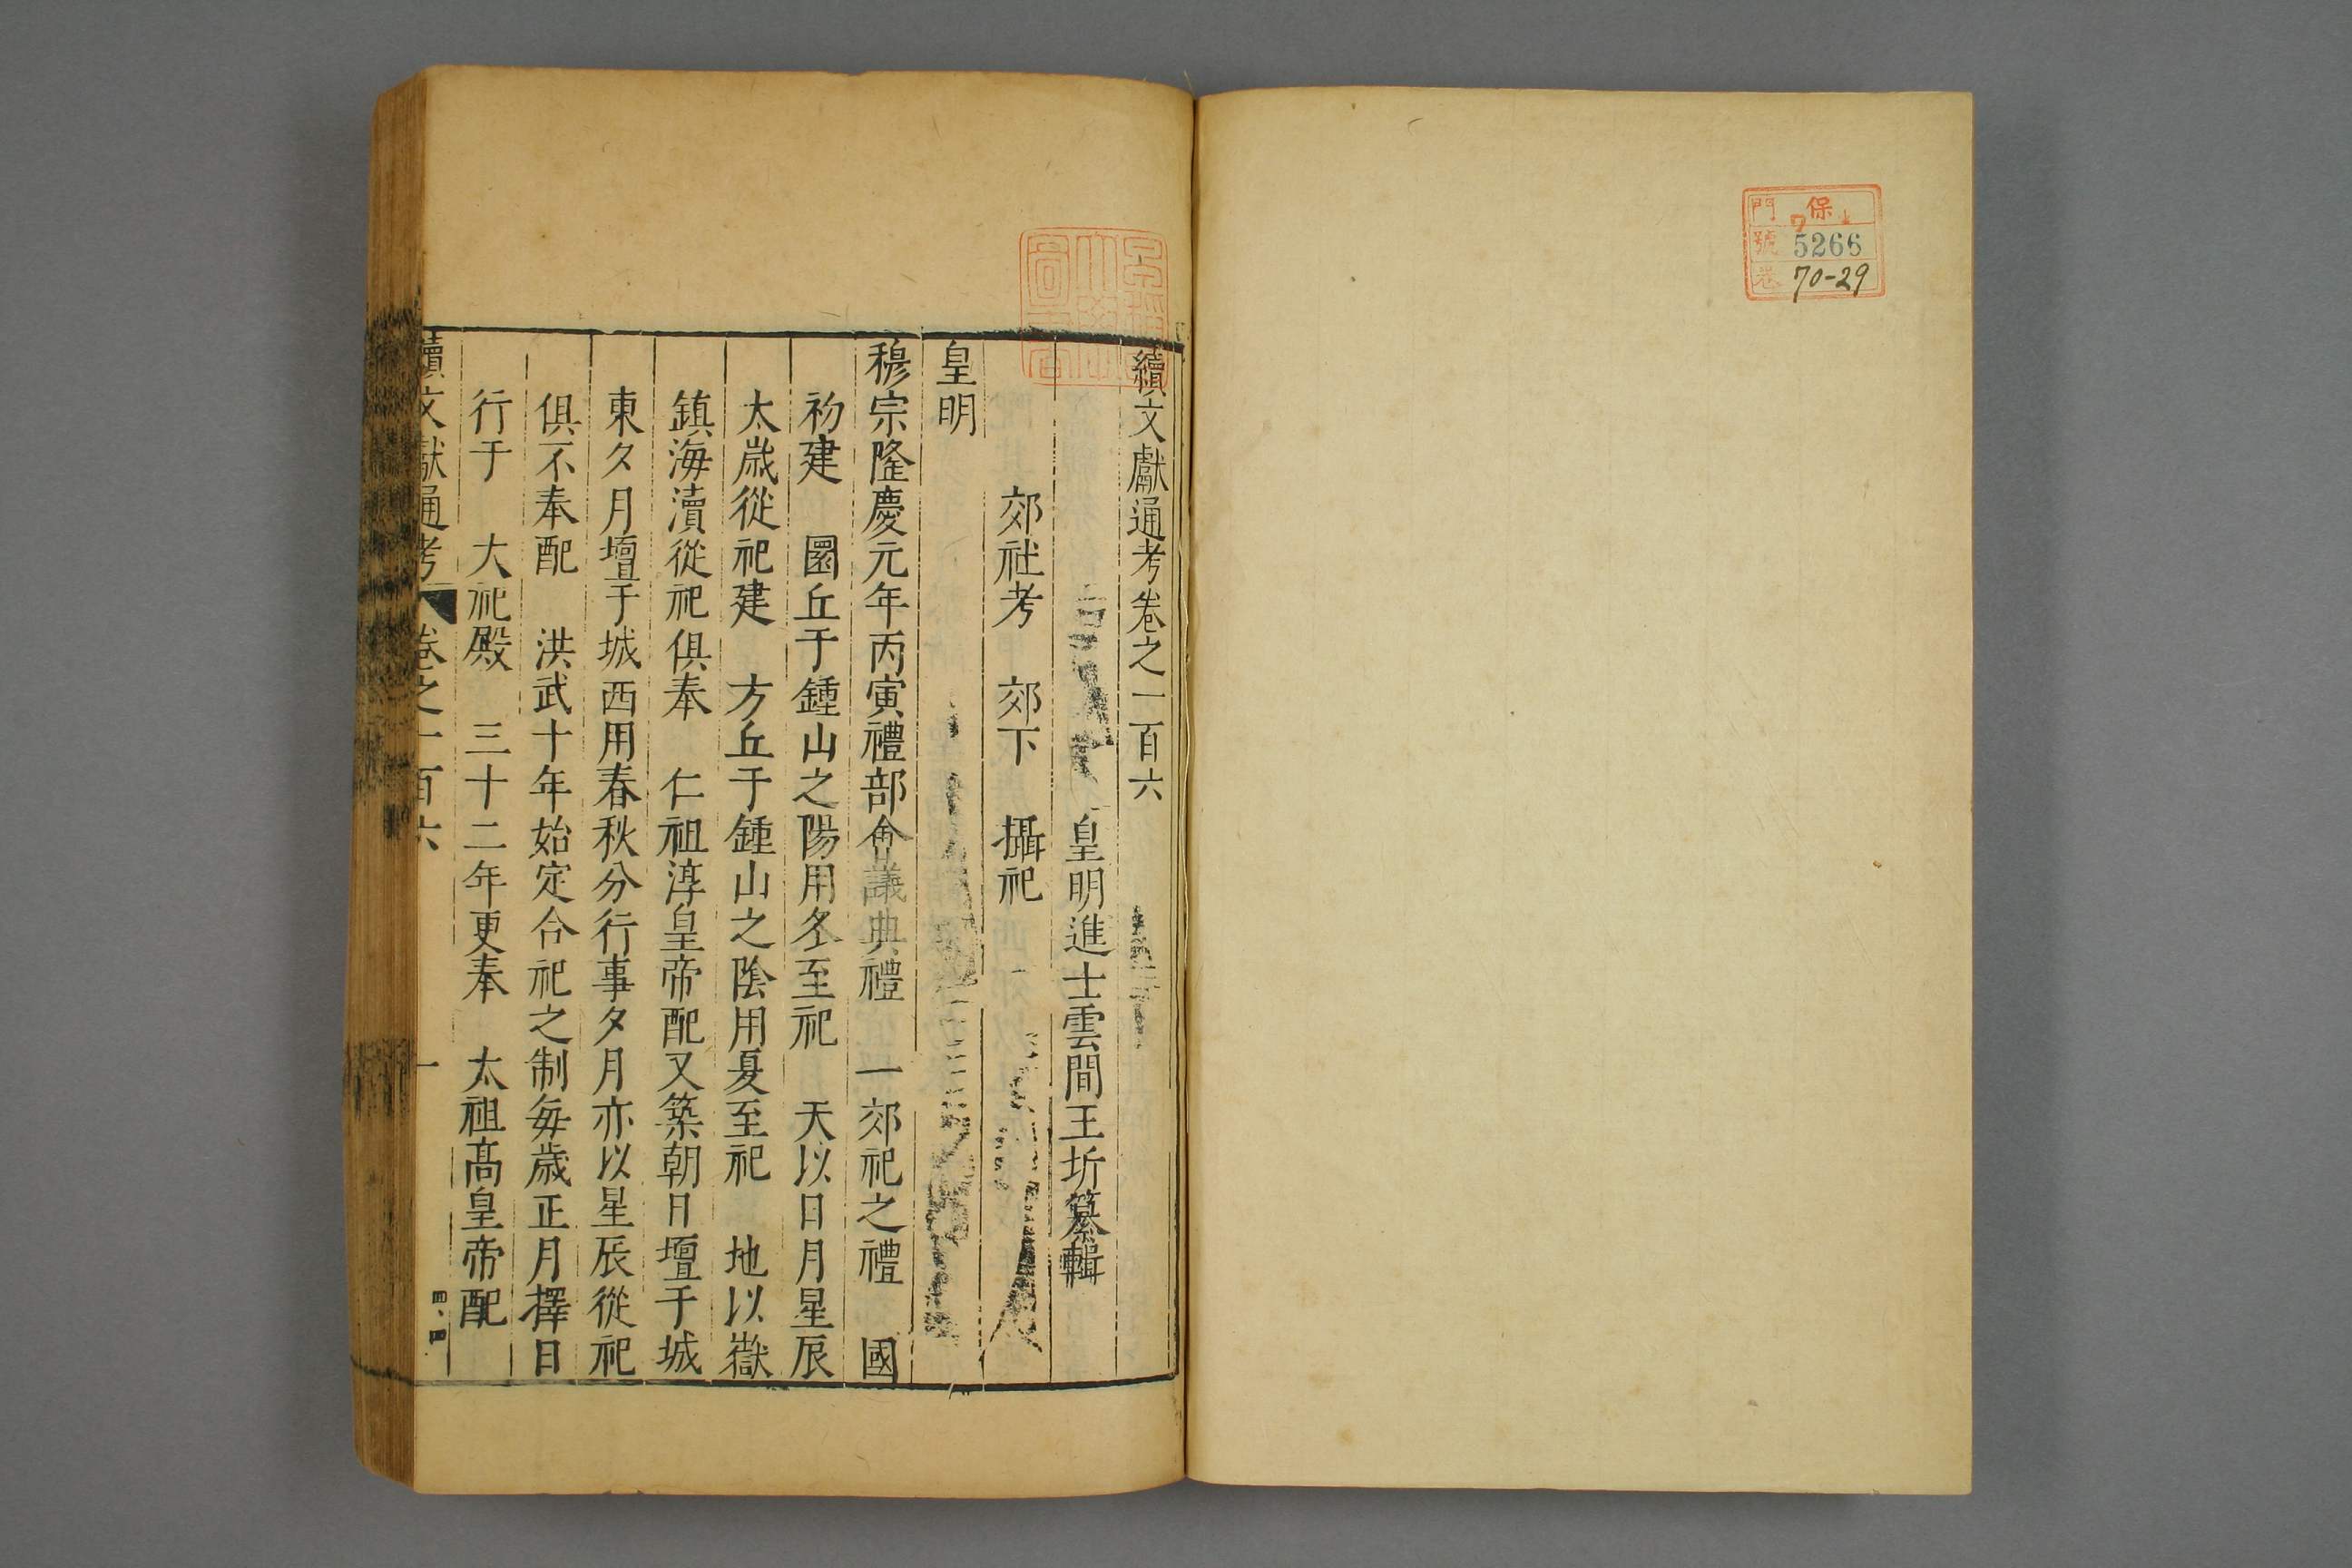 門 保
號 5266
卷 70-29
續文獻通考卷之一百六
皇明進士雲間王圻纂輯
郊社考 郊下 攝祀
皇明
穆宗隆慶元年丙寅禮部會議典禮 一郊祀之禮 國
初建 圜丘于鍾山之陽用冬至祀 天以日月星辰
太歲從祀建 方丘于鍾山之陰用夏至祀 地以嶽
鎮海瀆從祀俱奉 仁祖淳皇帝配又築朝日壇于城
東夕月壇于城西用春秋分行事夕月亦以星辰從祀
俱不奉配 洪武十年始定合祀之制每歲正月擇日
行于 大祀殿 三十二年更奉 太祖高皇帝配
續文獻通考 卷之一百六 一